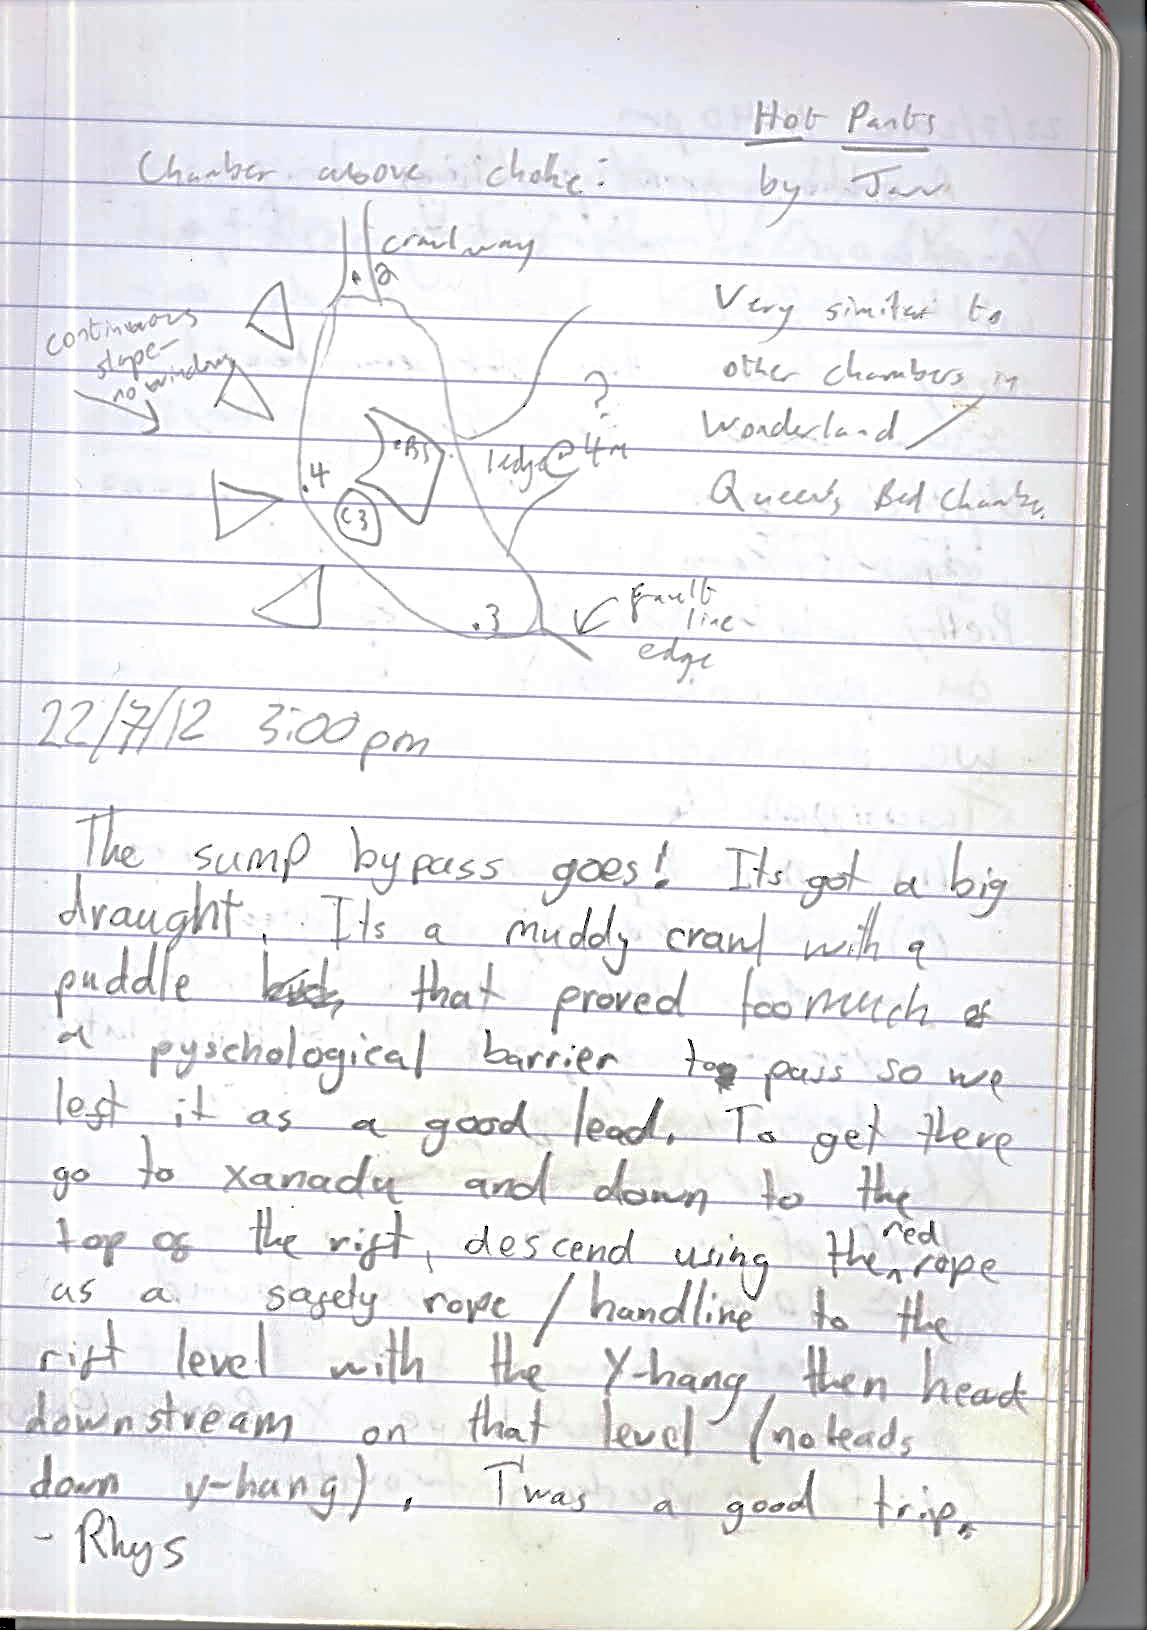 Hot Pants
Chamber above choke:
by Jan
crawlway
.2
continuous
slope-
no window
Very similar to
other chambers in
Wonderland /
Queens Bed Chamber.
?
ledge@4m
.4
C3
.3
fault
line-
edge
22/7/12 3:00pm
The sump bypass goes! Its got a big
draught. Its a muddy crawl with a
puddle that proved too much of
a pyschological barrier to pass so we
left it as a good lead. To get there
go to xanadu and down to the
top of the rift, descend using the red rope
as a safety rope / handline to the
rift level with the Y-hang, then head
downstream on that level (no leads
down y-hang). Twas a good trip.
- Rhys